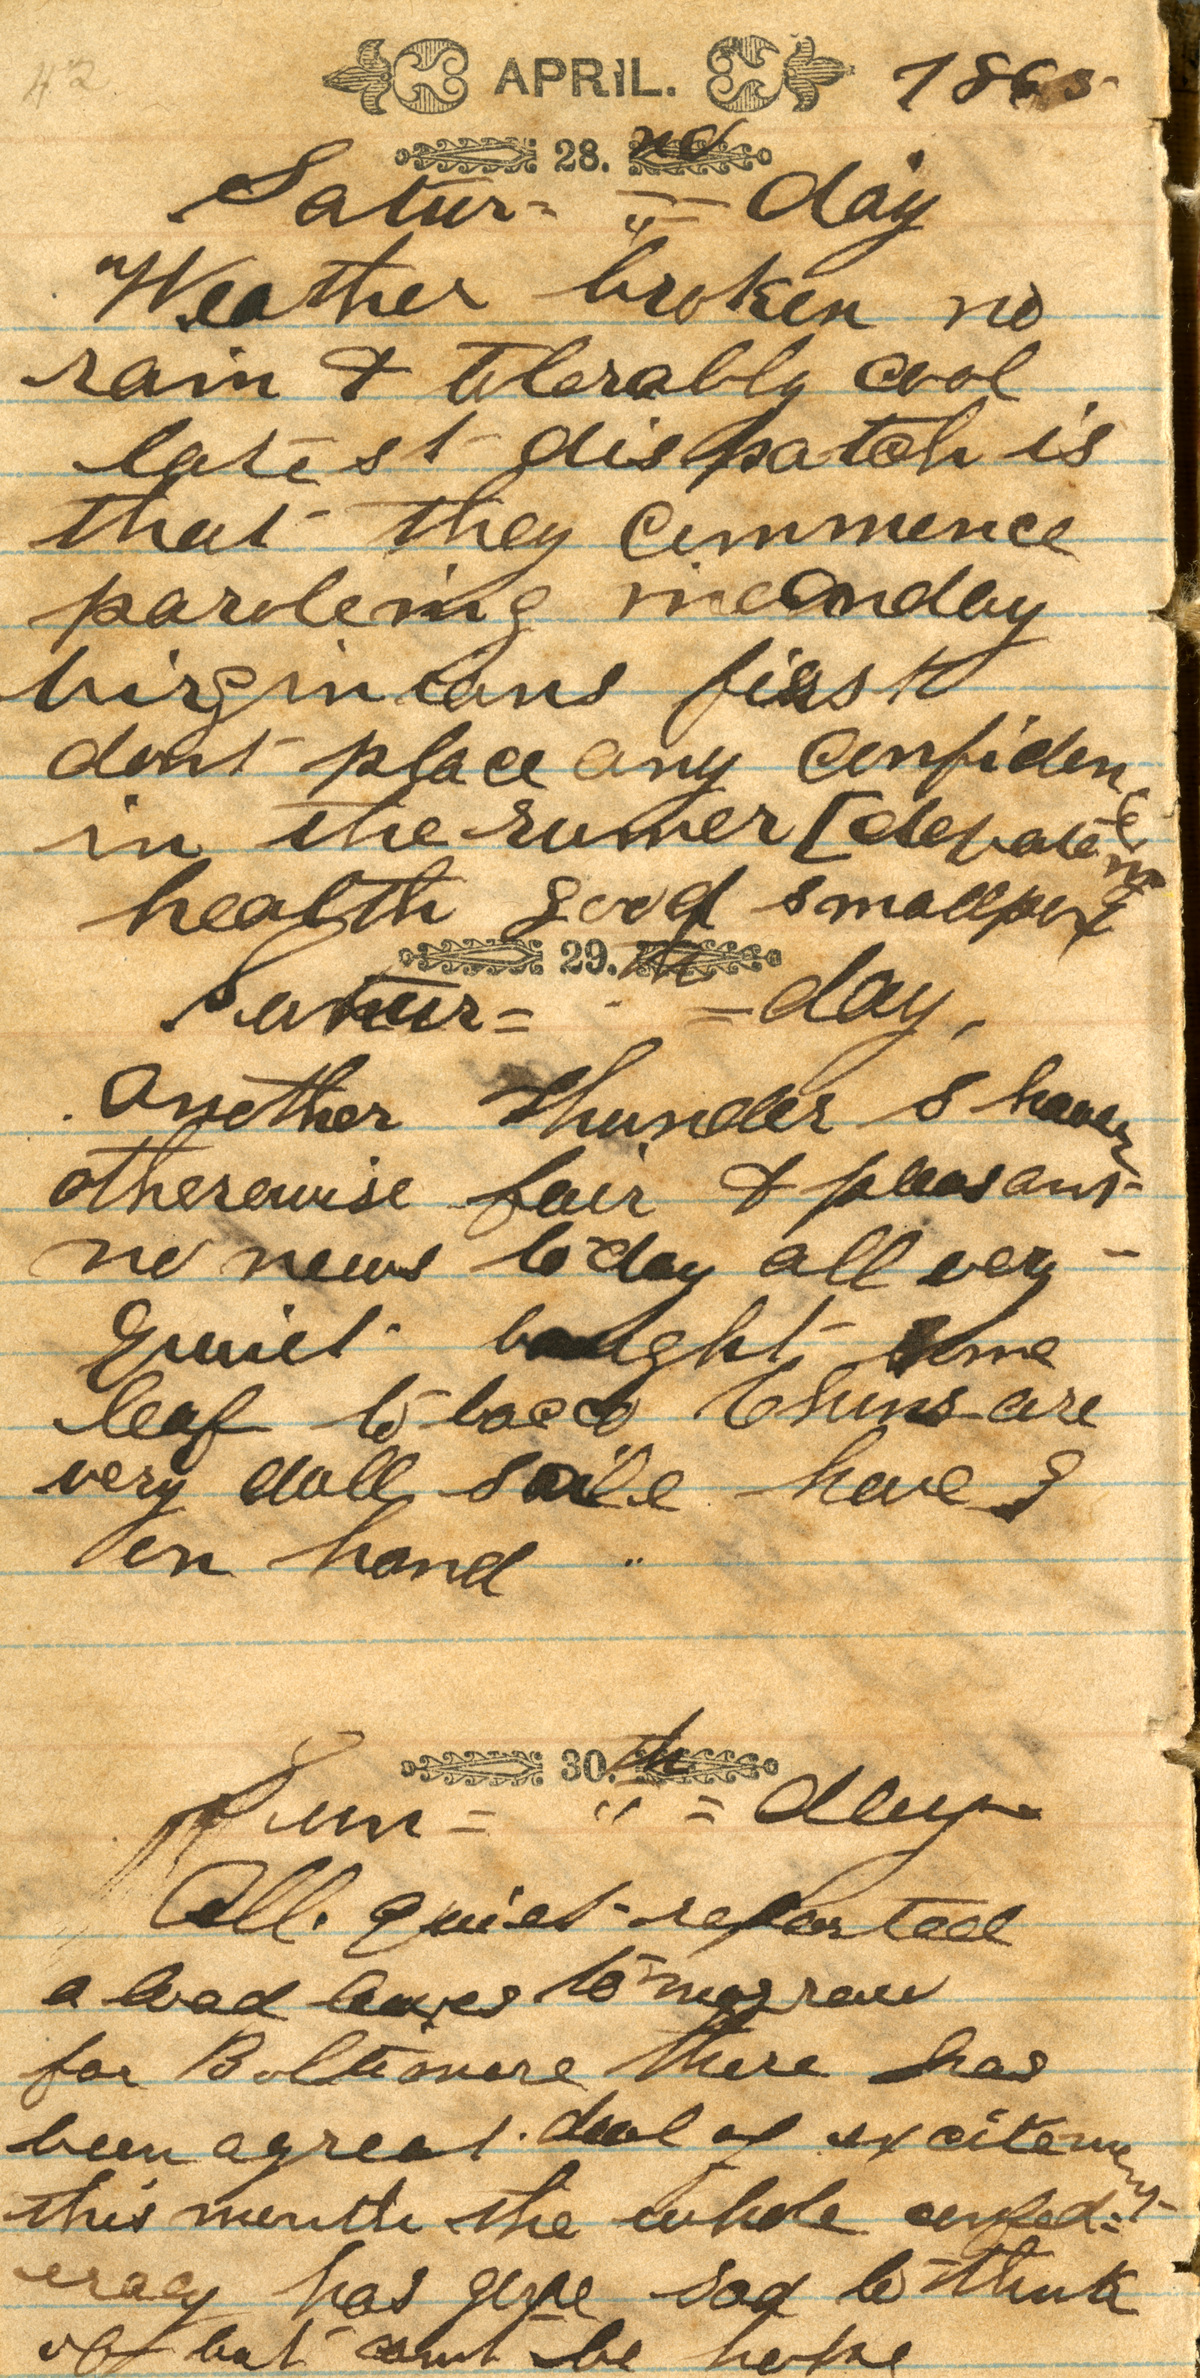 42
APRIL. 1865
28. nd
Satur- " = day
Weather broken no
rain & tolerably cool
latest dispatch is
that they commence
paroleing monday
virginians first
dont place any confiden
ce
in the rumer [depate
ing
health good smallpox
29. th
Satur= = day,
Another thunder shower
otherewise fair & pleasant
no news to day all very -
quiet bought some
leaf tobacco are
very dull have I
on hand "
30. th
Sun = " = day
All quiet reported
a load leaves tomorrow
for Boltimore there has
been a great deal of excitement
this month the whole confed=
eracy has gone sad to think
of but cant be